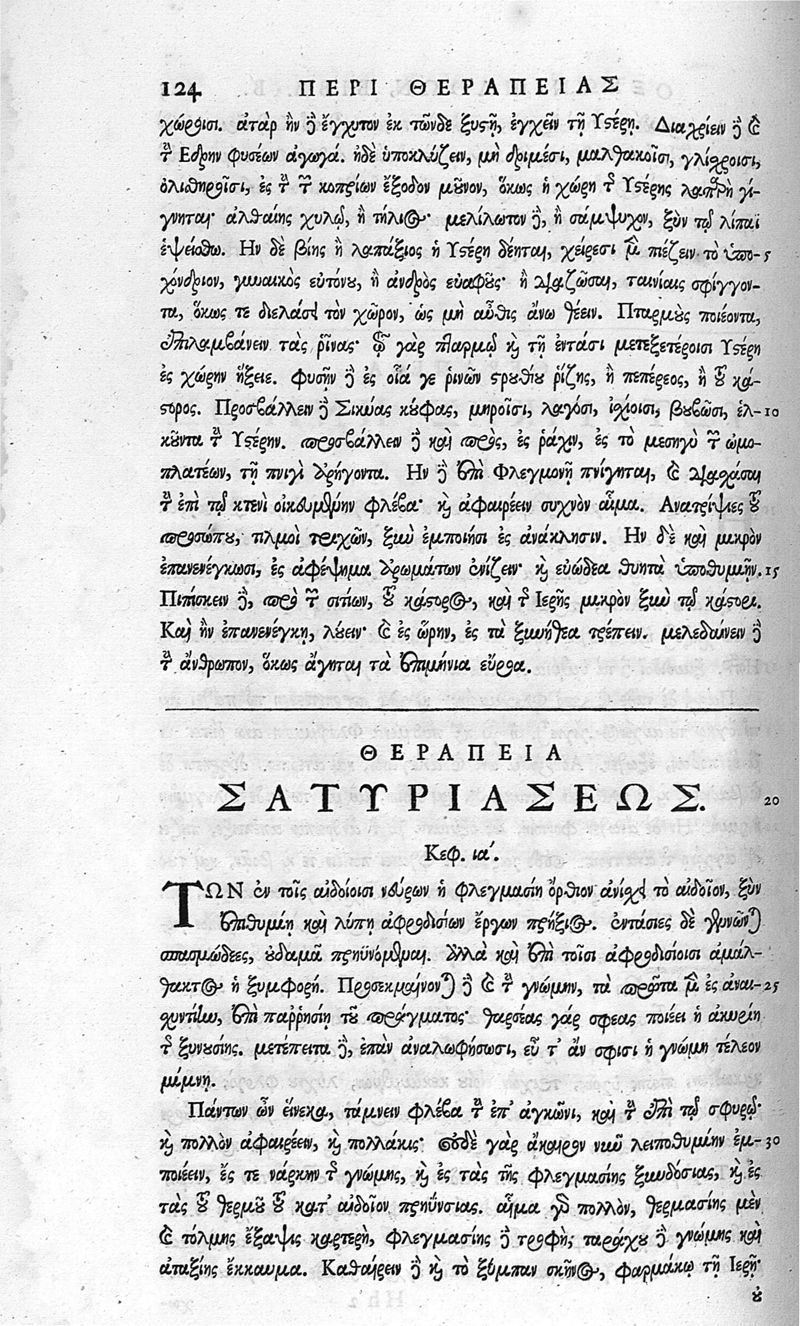 124 ΠΕΡΙ ΘΕΡΑΠΕΙΑΣ
χώρῃσι. ἀτὰρ ἢν δὲ ἔγχυτον ἐκ τῶνδε ξυστῇ, ἐγχεῖν τῇ Ὑστέρῃ. Διαχρίειν δὲ καὶ
τὴν Ἕδρην φυσέων ἀγωγά. ἠδὲ ὑποκλύζειν, μὴ δριμέσι, μαλθακοῖσι, γλίχροισι,
ὀλισθηροῖσι, ἐς τὴν τῶν κοπρίων ἔξοδον μοῦνον, ὅκως ἡ χώρη τῆς Ὑστέρης λαπαρὴ γί-
γνηται· ἀλθαίης χυλῷ, ἢ τήλιος· μελίλωτον δὲ, ἢ σάμψυχον, ξὺν τῷ λίπαϊ
ἑψείσθω. Ἢν δὲ βίης ἢ λαπάξιος ἡ Ὑστέρη δέηται, χείρεσι μὲν πιέζειν τὸ ὑπο- 5
χόνδριον, γυναικὸς εὐτόνου, ἢ ἀνδρὸς εὐαφοῦς· ἢ διαζῶσαι, ταινίαις σφίγγον-
τα, ὅκως τε διελάσει τὸν χῶρον, ὡς μὴ αὖθις ἄνω θέειν. Πταρμοὺς ποιέοντα,
ἐπιλαμβάνειν τὰς ῥῖνας· τῷ γὰρ πταρμῷ καὶ τῇ ἐντάσι μετεξετέροισι Ὑστέρη
ἐς χώρην ἥξειε. φυσῆν δὲ ἐς οἷά γε ῥινῶν στρουθίου ῥίζης, ἢ πεπέρεος, ἢ τοῦ κά-
στορος. Προσβάλλειν δὲ Σικύας κούφας, μηροῖσι, λαγόσι, ἰσχίοισι, βουβῶσι, ἕλ- 10
κοντα τὴν Ὑστέρην. προσβάλλειν δὲ καὶ πρὸς, ἐς ῥάχιν, ἐς τὸ μεσηγὺ τῶν ὠμο-
πλατέων, τῇ πνιγὶ ἀρήγοντα. Ἢν δὲ ἐπὶ Φλεγμονῇ πνίγηται, καὶ διασχάσαι
τὴν ἐπὶ τῷ κτενὶ οἰκουμένην φλέβα· καὶ ἀφαιρέειν συχνὸν αἷμα. Ἀνατρίψιες τοῦ
προσώπου, τιλμοὶ τριχῶν, ξὺν ἐμποιήσι ἐς ἀνάκλησιν. Ἢν δὲ καὶ μικρὸν
ἐπανενέγκωσι, ἐς ἀφέψημα ἀρωμάτων ἐνίζειν· καὶ εὐώδεα θυητὰ ὑποθυμιῆν. 15
Πιπίσκειν δὲ, πρὸ τῶν σιτίων, τοῦ κάστορος, καὶ τῆς Ἱερῆς μικρὸν ξὺν τῷ κάστορι.
Καὶ ἢν ἐπανενέγκῃ, λούειν· καὶ ἐς ὥρην, ἐς τὰ ξυνήθεα τρέπειν. μελεδαίνειν δὲ
τὴν ἄνθρωπον, ὅκως ἄγηται τὰ ἐπιμήνια εὔροα.
ΘΕΡΑΠΕΙΑ
ΣΑΤΥΡΙΑΣΕΩΣ. 20
Κεφ. ια'.
ΤΩΝ ἐν τοῖς αἰδοίοισι νεύρων ἡ φλεγμασίη ὄρθιον ἀνίσχει τὸ αἰδοῖον, ξὺν
ἐπιθυμίῃ καὶ λύπῃ ἀφροδισίων ἔργων πρήξιος. ἐντάσιες δὲ γίγνονται
σπασμώδεες, οὐδαμᾶ πρηϋνόμεναι. ἀλλὰ καὶ ἐπὶ τοῖσι ἀφροδισίοισι ἀμάλ-
θακτος ἡ ξυμφορή. Προσεκμαίνονται δὲ καὶ τὴν γνώμην, τὰ πρῶτα μὲν ἐς ἀναι- 25
σχυντίην, ἐπὶ παῤῥησίῃ τοῦ πράγματος· θαρσέας γάρ σφεας ποιέει ἡ ἀκυρίη
τῆς ξυνουσίης. μετέπειτα δὲ, ἐπὰν ἀναλωφήσωσι, εὖ τ' ἄν σφισι ἡ γνώμη τέλεον
μίμνῃ.
Πάντων ὦν εἵνεκα, τάμνειν φλέβα τὴν ἐπ' ἀγκῶνι, καὶ τὴν ἐπὶ τῷ σφυρῷ·
καὶ πολλὸν ἀφαιρέειν, καὶ πολλάκις· οὐδὲ γὰρ ἄκαιρον νῦν λειποθυμίην ἐμ- 30
ποιέειν, ἔς τε νάρκην τῆς γνώμης, καὶ ἐς τὰς τῆς φλεγμασίης ξυνδόσιας, καὶ ἐς
τὰς τοῦ θερμοῦ τοῦ κατ' αἰδοῖον πρηΰνσιας. αἷμα γὰρ πολλὸν, θερμασίης μὲν
καὶ τόλμης ἔξαψις καρτερὴ, φλεγμασίης δὲ τροφὴ, ταράχου δὲ γνώμης καὶ
ἀταξίης ἔκκαυμα. Καθαίρειν δὲ καὶ τὸ ξύμπαν σκῆνος, φαρμάκῳ τῇ Ἱερῇ·
οὐ